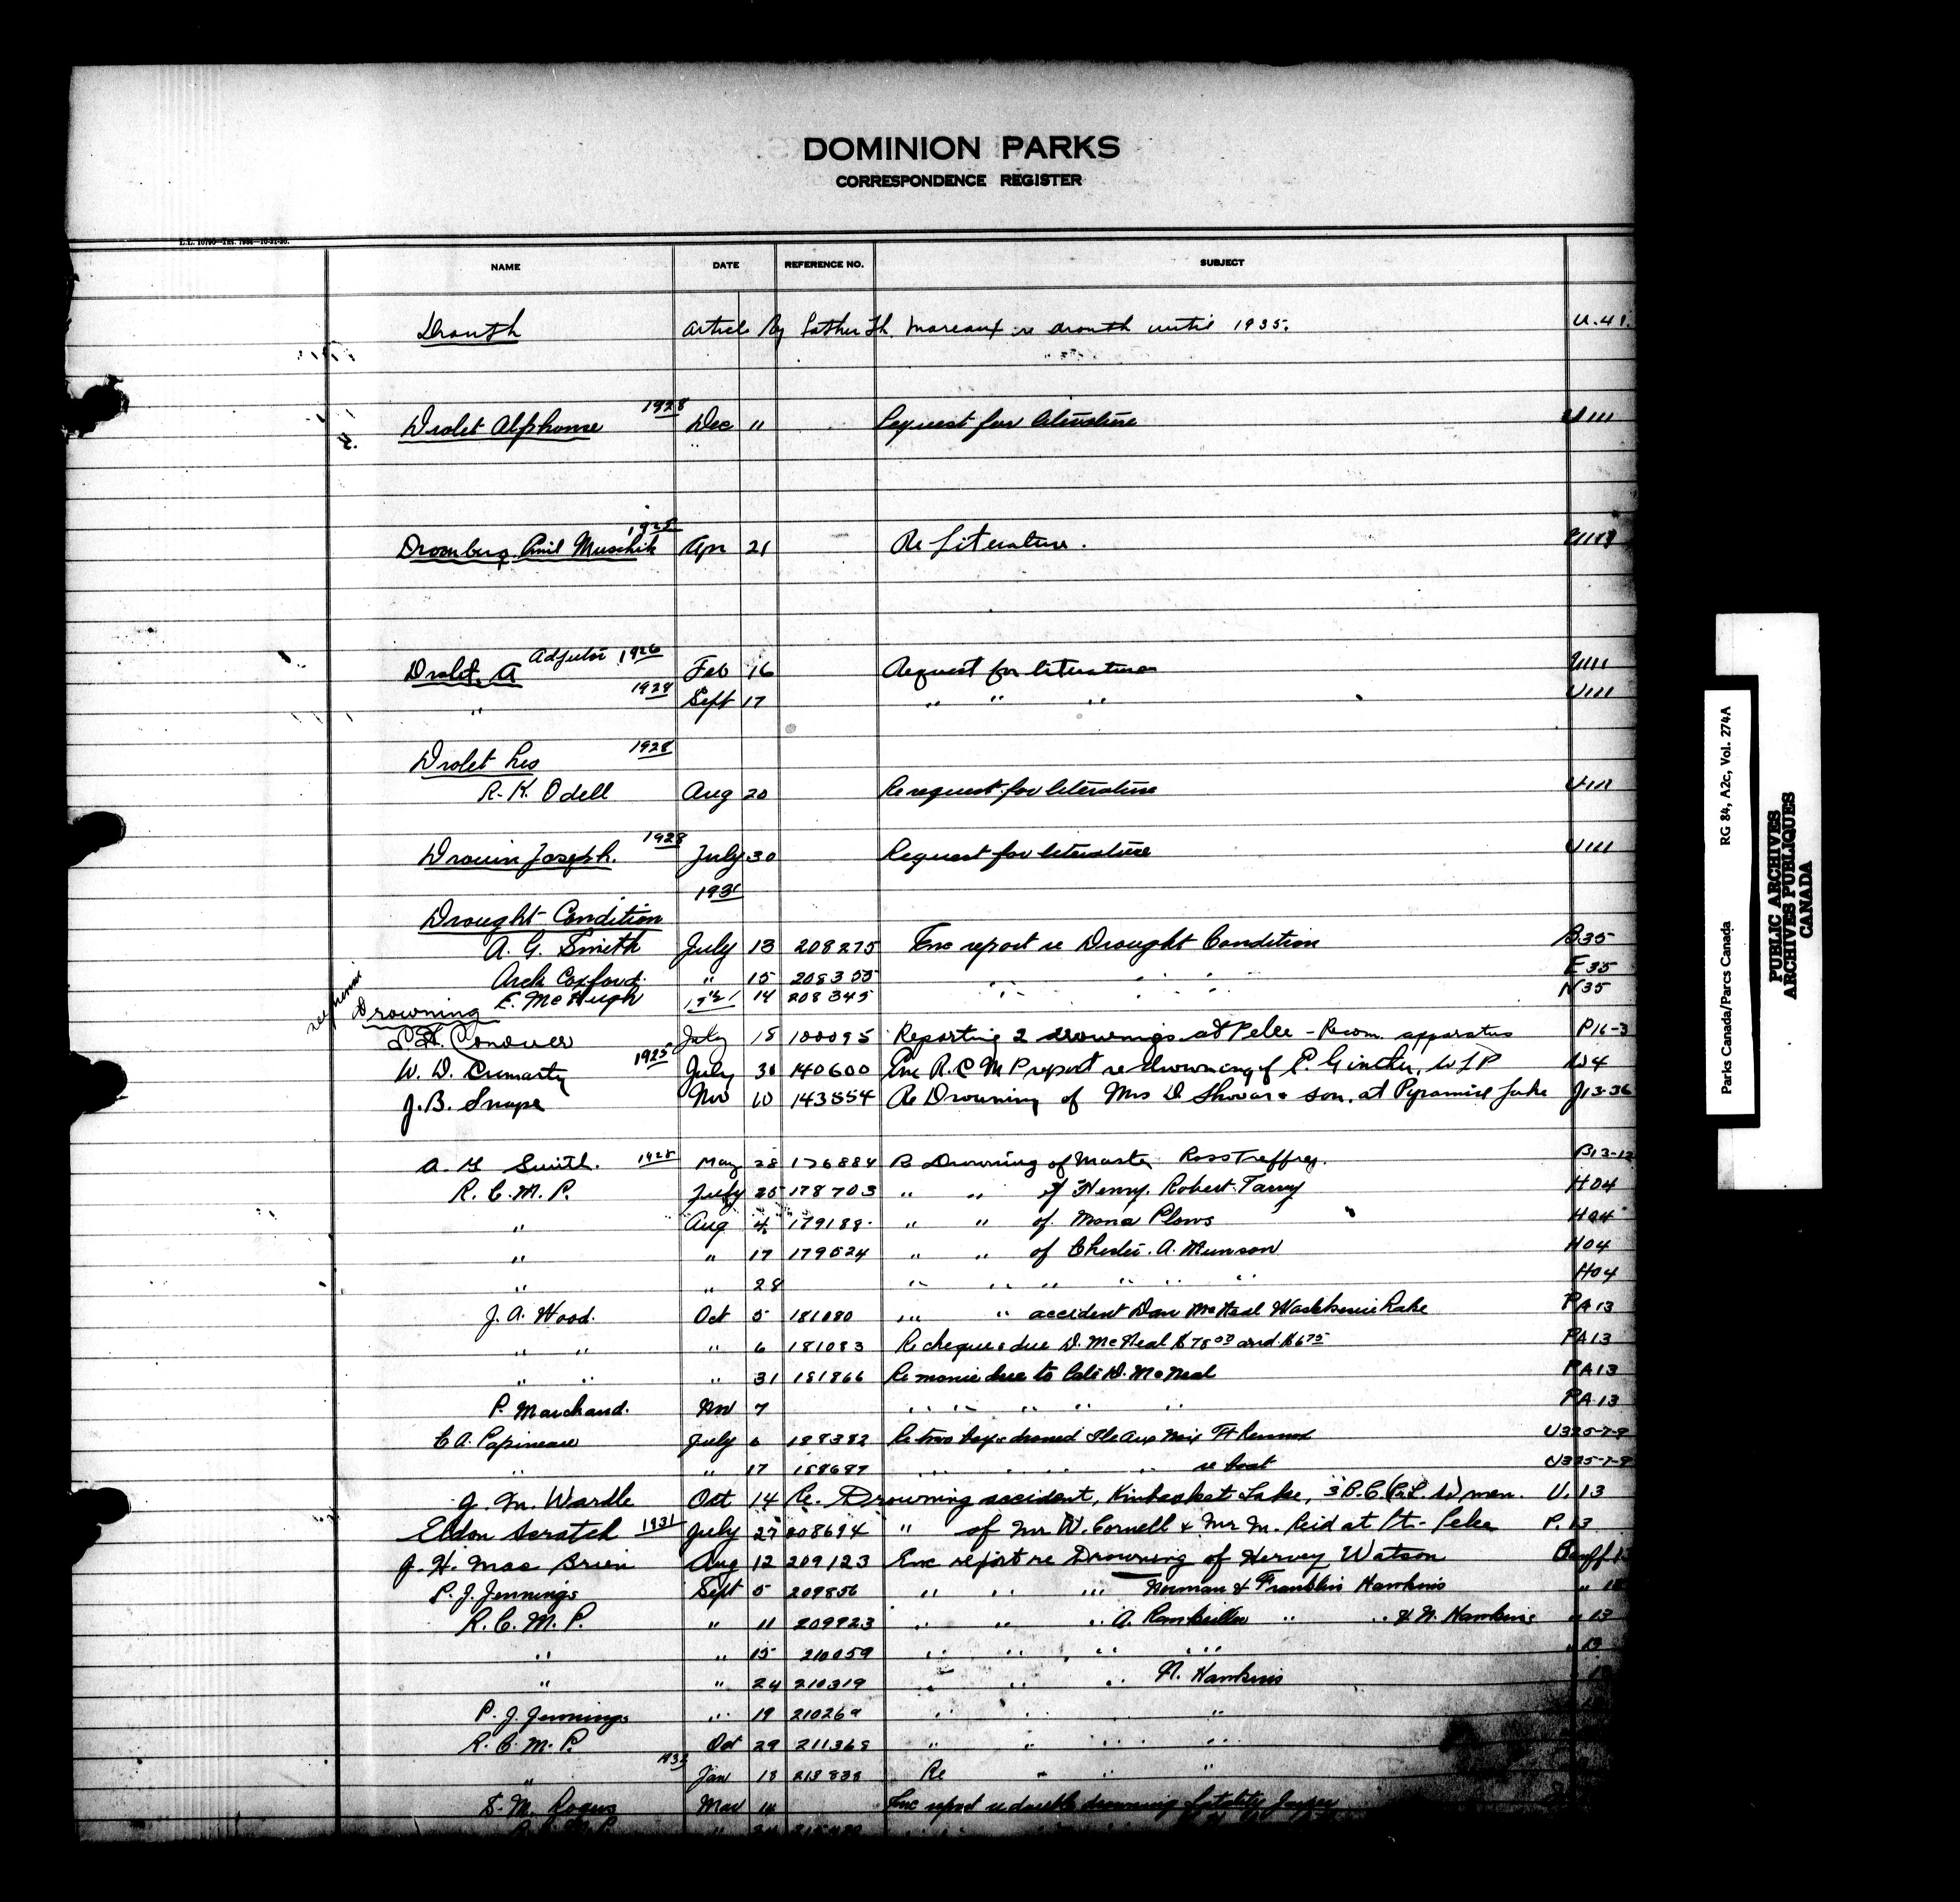 DOMINION PARKS
CORRESPONDENCE REGISTER
L.L. 10790
NAME DATE REFERENCE NO. SUBJECT
Drouth Article By Father Th. Moreaux re drouth until 1935. U.41.
Drolet Alphonse 1928 Dec " Request for literature U111
Muschik Apr 21 Re Literature.
Drolet, A Adjutor 1926 Feb 16 Request for literature U111
" 1928 Sept 17 " " " U111
Drolet Leo 1928
R. K. Odell Aug 20 Re request for literature U111
Drouin Joseph. 1928 July 30 Request for literature U111
1931
Drought Condition
A. G. Smith July 13 208275 Enc report re Drought Condition B35
Arch Coxford. " 15 208355 " " " E35
E. McHugh 14 208345 " " " N35
Drowning
Conover July 18 100095 Reporting 2 drownings at Pelee - Recom. apparatus P16-3
W. D. Cromarty 1925 July 31 140600 Enc R.C.M.P report re drowning of P. Ginther, W L P W4
J. B. Snape Nov 10 143554 Re Drowning of Mrs D Shovar & son, at Pyramid Lake J13-36
A. G Smith. 1928 May 28 176884 Re Drowning of Master Ross Treffrey. B13-12
R. C. M. P. July 25 178703 " " of Henry Robert Tarry H04
" Aug 4 179188 " " of Mona Plows H04
" " 17 179524 " " of Chester A. Munson H04
" " 28 " " " " " " H04
J. A. Wood. Oct 5 181080 " " accident Dan McNeal Waskesiu Lake PA13
" " " 6 181083 Re cheques due D. McNeal $78.00 and $6.75 PA13
" " " 31 181866 Re monies due to late D. McNeal PA13
P. Marchand. Nov 7 " " " " " PA13
C A. Papineau July 6 188382 Re two boys drowned Ile Aux Noix Ft Lennox U325-7-9
" " 17 188687 " " " " re boat U325-7-9
J. M. Wardle Oct 14 Re. Drowning accident, Kinbasket Lake, 3 B.C. men. U.13
Eldon Scratch 1931 July 27 208694 " of Mr W. Cornell & Mr M. Reid at Pt. Pelee P.13
J. H. MacBrien Aug 12 209123 Enc report re Drowning of Hervey Watson Banff 13
P. J. Jennings Sept 5 209856 " " " Norman & Franklin Hawkins " 13
R. C. M. P. " 11 209923 " " " A. " " & N. Hawkins " 13
" " 15 210059 " " " " " 13
" " 24 210319 " " " N. Hawkins
P. J. Jennings " 19 210269 " " "
R. C. M. P. Oct 29 211368 " " " "
" 1932 Jan 18 213838 Re " " "
S. M. Rogers Mar 14 Enc report re double drowning fatality Jasper
Parks Canada/Parcs Canada RG 84, A2c, Vol. 274A
PUBLIC ARCHIVES
ARCHIVES PUBLIQUES
CANADA